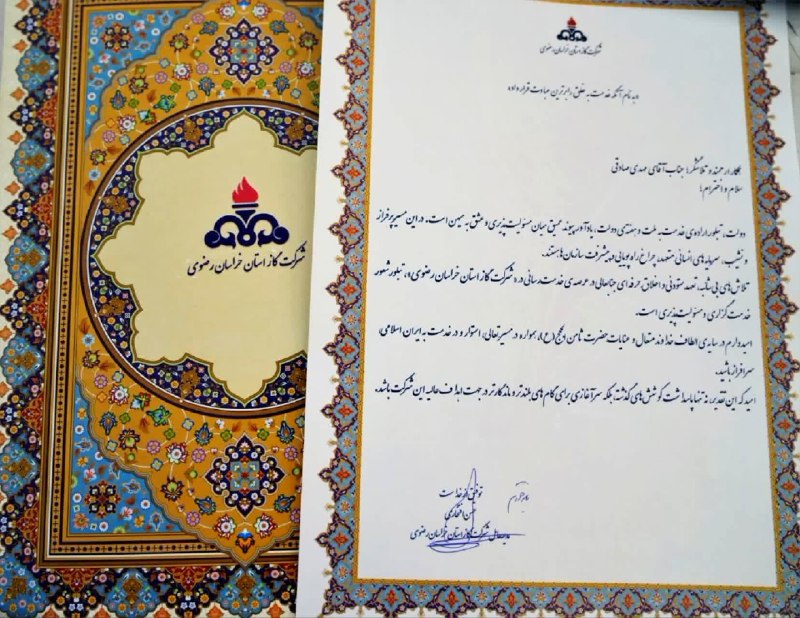 شرکت گاز استان خراسان رضوی
شرکت گاز استان خراسان رضوی
به نام آنکه خدمت به خلق را برترین عبادت قرار داد
همکار ارجمند و تلاشگر؛ جناب آقای مهدی صادقی
سلام و احترام؛
دولت، تبلور اراده‌ی خدمت به ملت و هفته‌ی دولت، یادآور پیوند عمیق میان مسئولیت‌پذیری و عشق به میهن است. در این مسیر پرفراز
و نشیب، سرمایه‌های انسانی متعهد، چراغ راه پویایی و پیشرفت سازمان‌ها هستند.
تلاش‌های بی‌شائبه، تعهد ستودنی و اخلاق حرفه‌ای جنابعالی در عرصه‌ی خدمت‌رسانی در « شرکت گاز استان خراسان رضوی»، تبلور شعور
خدمت‌گزاری و مسئولیت‌پذیری است.
امیدوارم در سایه‌ی الطاف خداوند متعال و عنایات حضرت ثامن الحجج(ع)، همواره در مسیر تعالی، استوار و در خدمت به ایران اسلامی
سرافراز باشید.
امید که این تقدیر، نه تنها پاسداشت کوشش‌های گذشته، بلکه سرآغازی برای گام‌های بلندتر و ماندگارتر در جهت اهداف عالیه این شرکت باشد.
توفیق از خداست
حسن افتخاری
مدیرعامل شرکت گاز استان خراسان رضوی